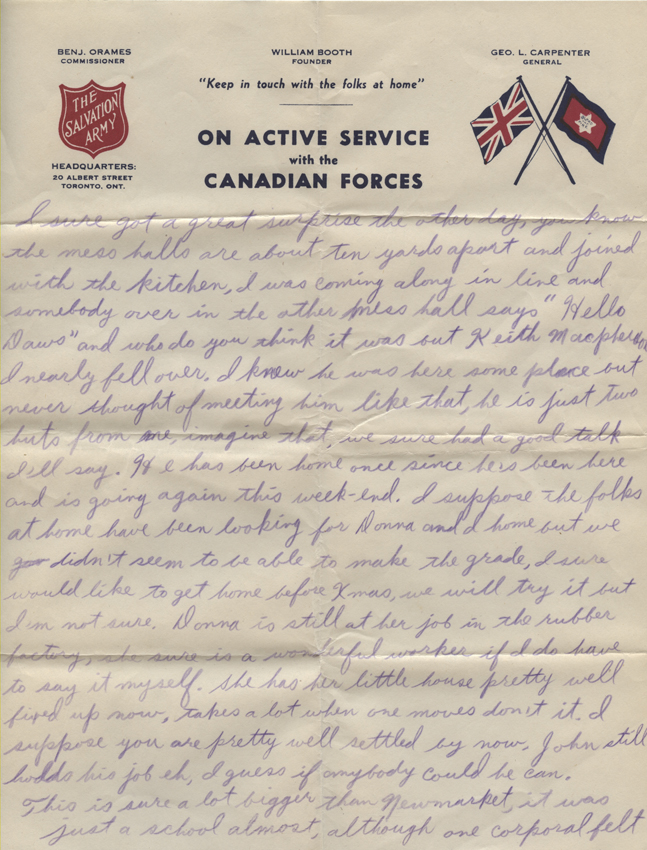 BENJ. ORAMES
COMMISSIONER
WILLIAM BOOTH
FOUNDER
GEO. L. CARPENTER
GENERAL
"Keep in touch with the folks at home"
THE
SALVATION
ARMY
ON ACTIVE SERVICE
with the
CANADIAN FORCES
HEADQUARTERS:
20 ALBERT STREET
TORONTO, ONT.
I sure got a great surprise the other day, you know
the mess halls are about ten yards apart and joined
with the kitchen, I was coming along in line and
somebody over in the other mess hall says "Hello
Daws" and who do you think it was but Keith Macpherson
I nearly fell over. I knew he was here some place but
never thought of meeting him like that, he is just two
huts from me, imagine that, we sure had a good talk
I'll say. He has been home once since he's been here
and is going again this week-end. I suppose the folks
at home have been looking for Donna and I home but we
didn't seem to be able to make the grade, I sure
would like to get home before Xmas, we will try it but
I'm not sure. Donna is still at her job in the rubber
factory, she sure is a wonderful worker if I do have
to say it myself. She has her little house pretty well
fixed up now, takes a lot when one moves don't it. I
suppose you are pretty well settled by now. John still
holds his job eh, I guess if anybody could he can.
This is sure a lot bigger than Newmarket, it was
just a school almost, although one corporal felt